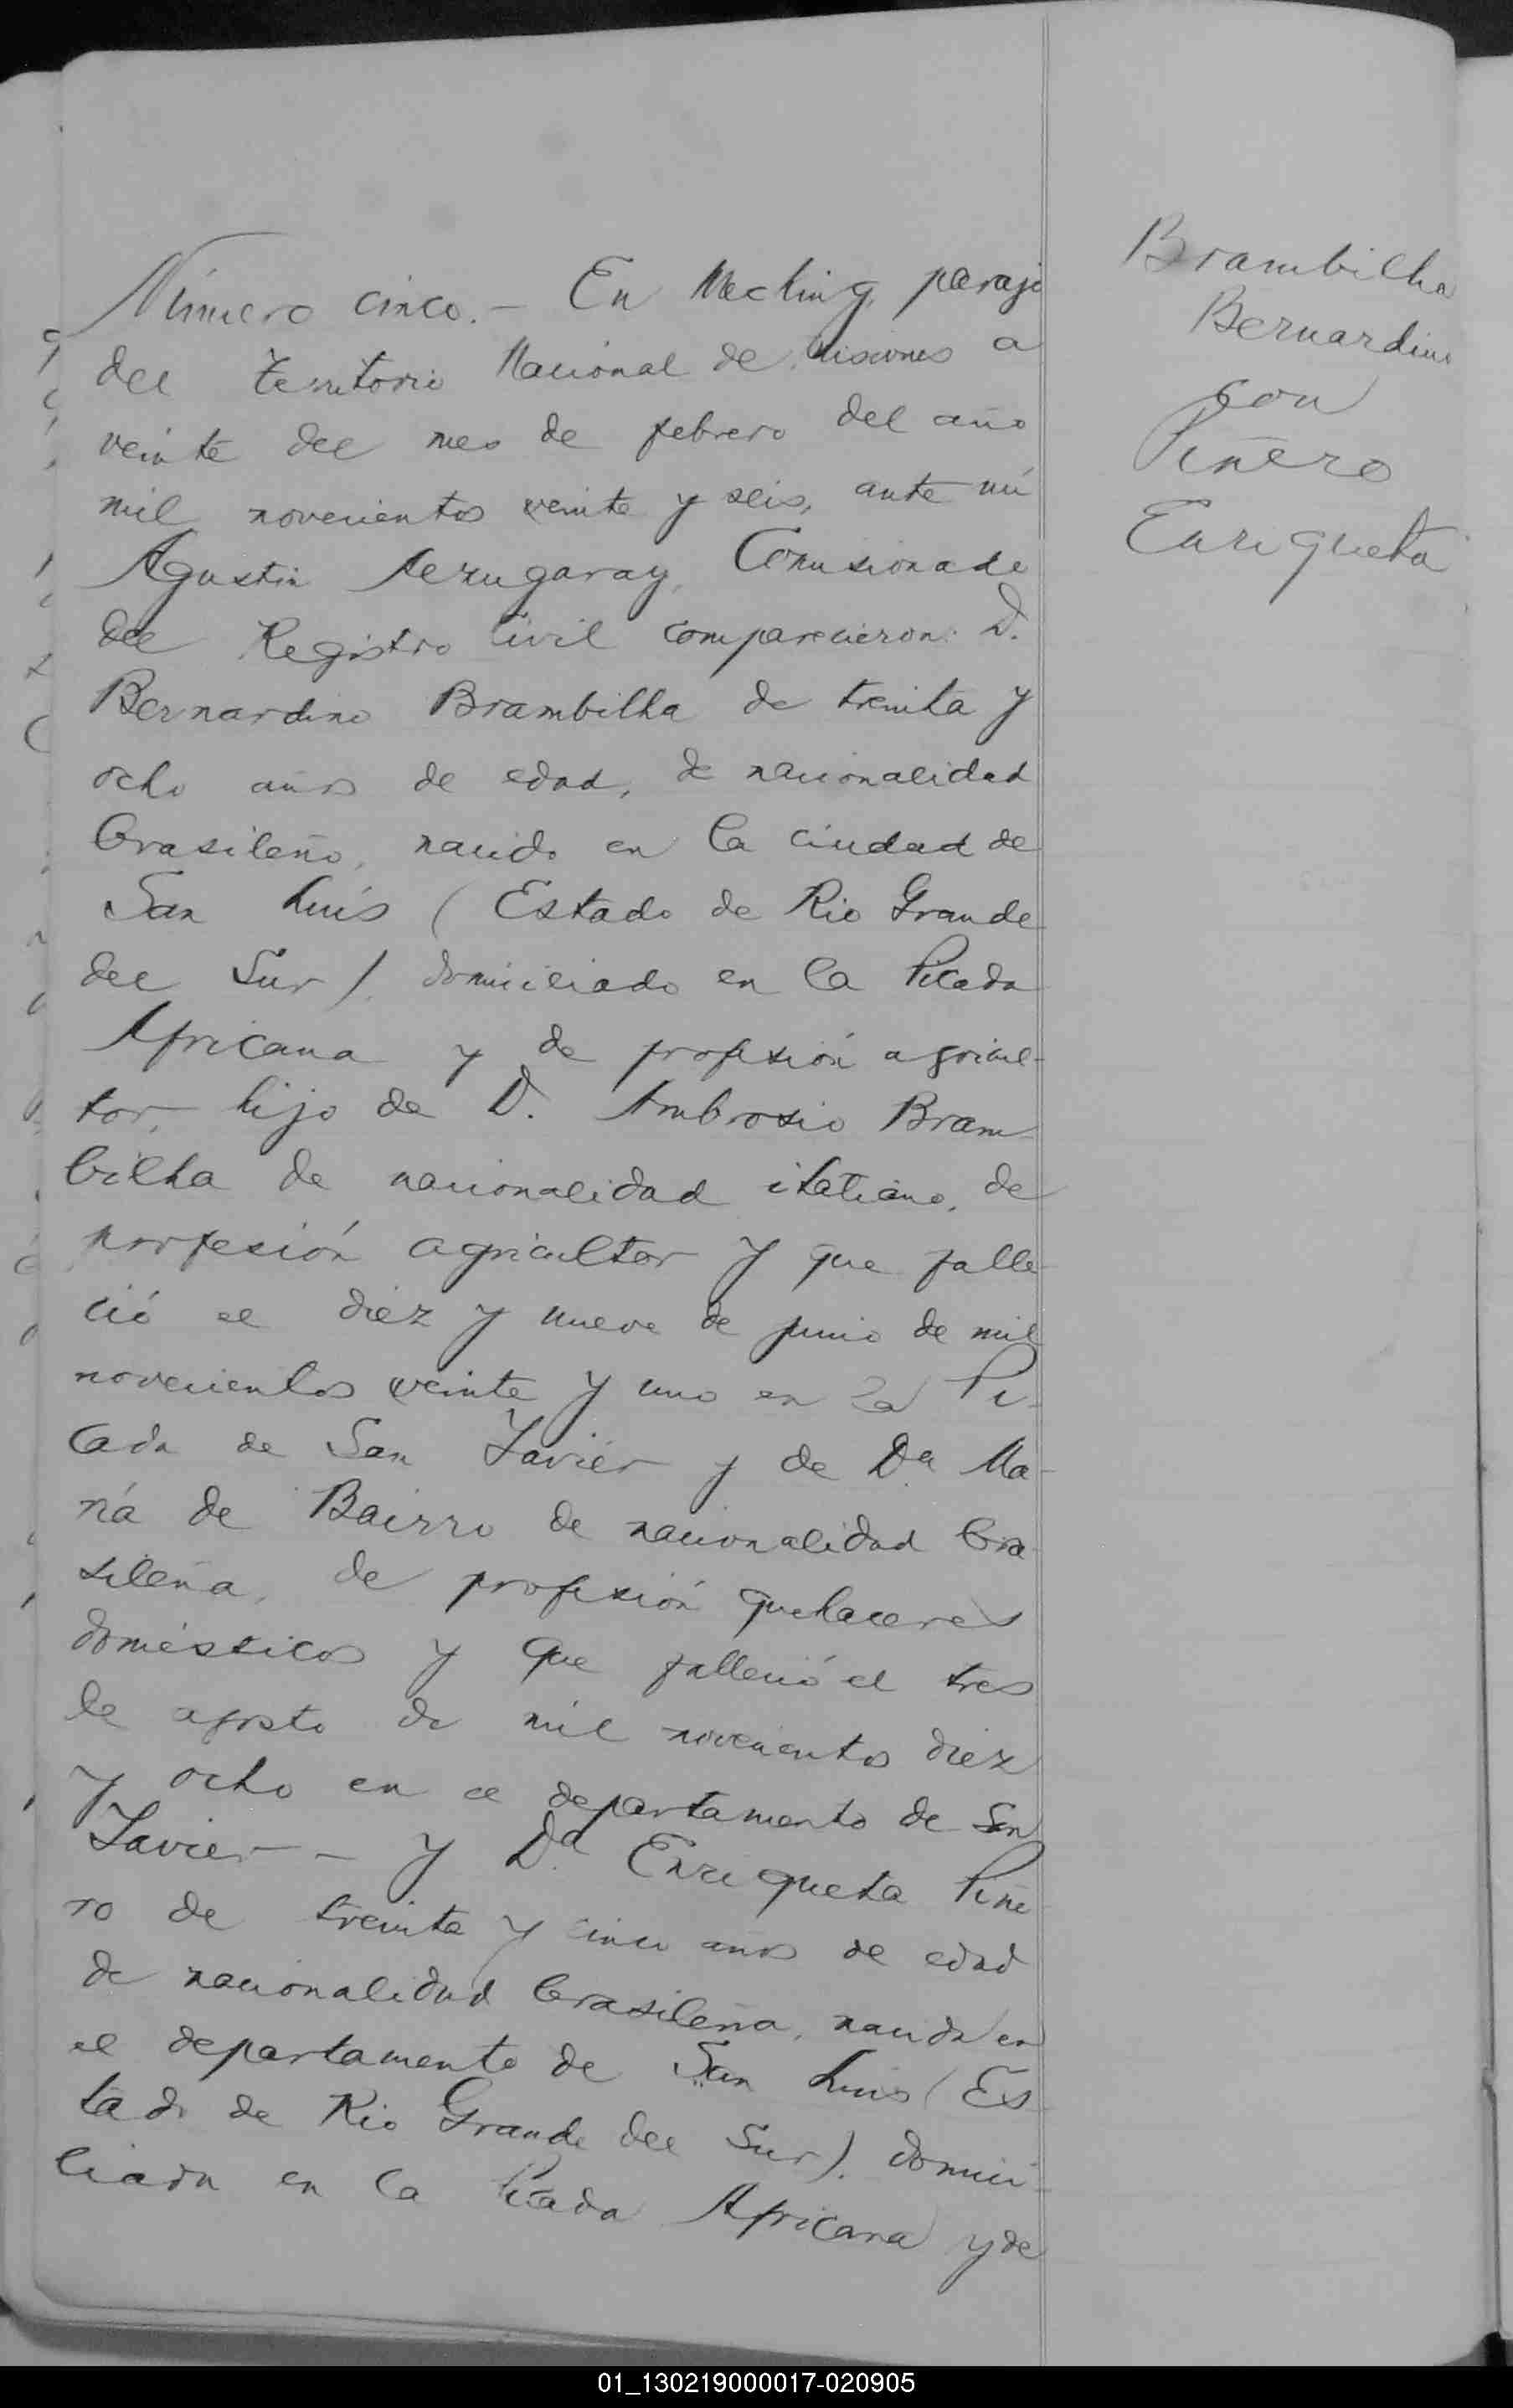 Número cinco.- En Mecking, paraje
del Territorio Nacional de Misiones a
veinte del mes de febrero del año
mil novecientos veinte y seis, ante mí
Agustin Comisionado
del Registro Civil comparecieron: D.
Bernardino Brambilha de treinta y
ocho años de edad, de nacionalidad
brasileño, nacido en la ciudad de
San Luis (Estado de Rio Grande
del Sur), domiciliado en la Picada
Africana y de profesión agricul-
tor, hijo de D. Ambrosio Bram-
bilha de nacionalidad italiano, de
porfesión agricultor y que falle-
ció el diez y nueve de junio de mil
novecientos veinte y uno en la Pi-
cada de San Javier y de Da. Ma-
ría de Bairro de nacionalidad bra-
sileña, de profesión quehaceres
domésticos y que falleció el tres
de agosto de mil novecientos diez
y ocho en el departamento de San
Javier - y Da. Enriqueta Piñe
ro de treinta y cinco años de edad
de nacionalidad brasileña, nacida en
el departamento de San Luis (Es-
tado de Rio Grande del Sur). domici-
liada en la Picada Africana y de
Brambilha
Bernardino
con
Piñero
Enriqueta
01_130219000017-020905